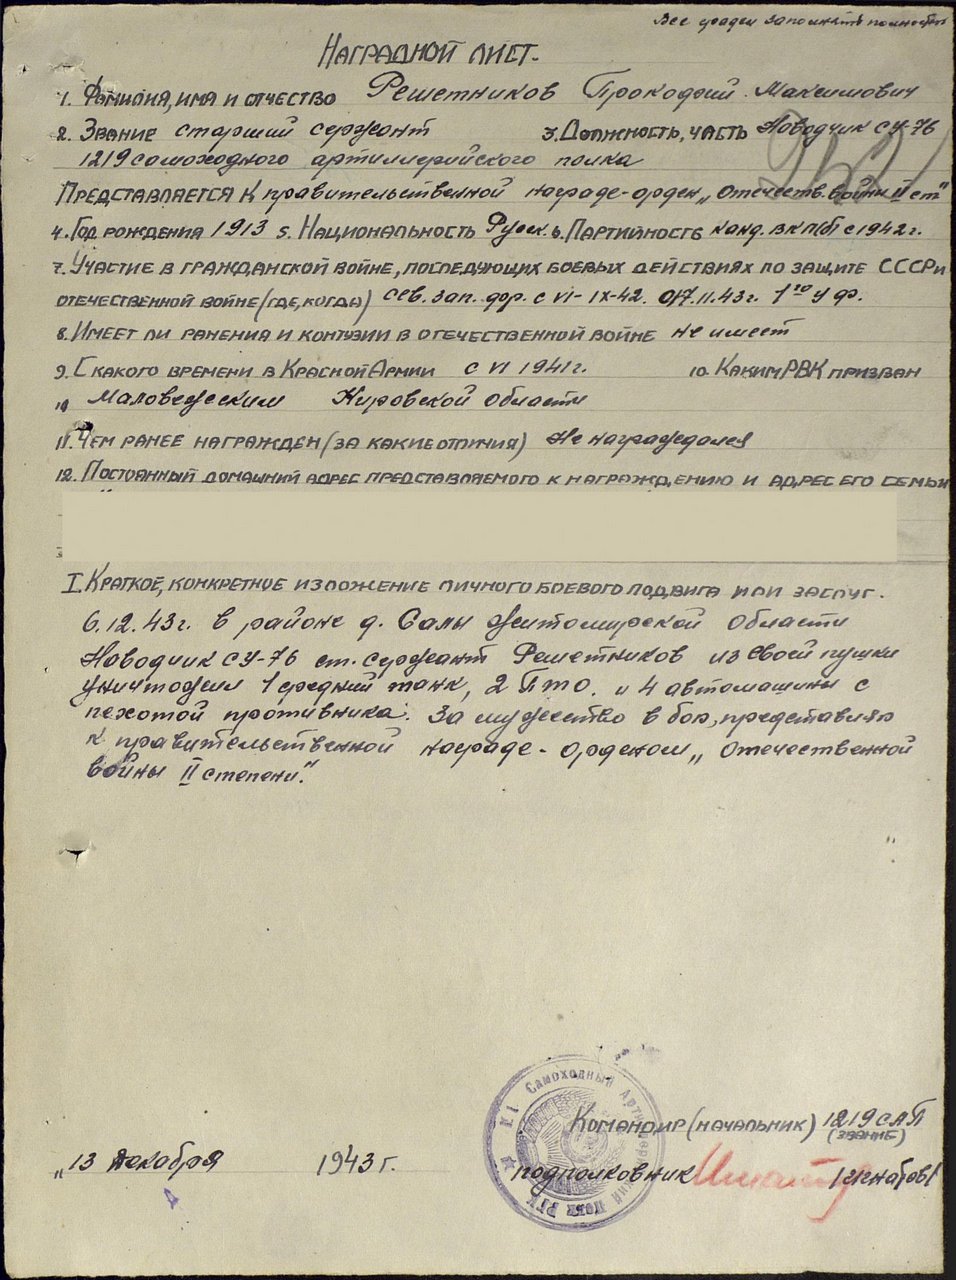 Все графы заполнять полностью
Наградной лист.
1. Фамилия, имя и отчество Решетников Прокофий Максимович
2. Звание старший сержант 3. Должность, часть Наводчик СУ-76
1219 самоходного артиллерийского полка
Представляется к правительственной награде - орден „Отечеств. войны II ст"
4. Год рождения 1913 5. Национальность Русск. 6. Партийность канд. ВКП(б) с 1942 г.
7. Участие в гражданской войне, последующих боевых действиях по защите СССР и
отечественной войне (где, когда) Сев. зап. фр. с VI-IX-42. 17.11.43г. 1го У.ф.
8. Имеет ли ранения и контузии в отечественной войне не имеет
9. С какого времени в Красной Армии с VI 1941 г. 10. Каким РВК призван
Кировской области
11. Чем ранее награжден (за какие отличия) Не награждался
12. Постоянный домашний адрес представляемого к награждению и адрес его семьи
I. Краткое, конкретное изложение личного боевого подвига или заслуг.
6.12.43г. в районе д. Салы Житомирской области
Наводчик СУ-76 ст. сержант Решетников из своей пушки
уничтожил 1 средний танк, 2 ПТО. и 4 автомашины с
пехотой противника. За мужество в бою, представляю
к правительственной награде - орденом „Отечественной
войны II степени."
Командир (начальник) 1219 САП
(звание)
„13 декабря 1943 г. подполковник Игнатов
Самоходный Артиллерийский Полк РГК